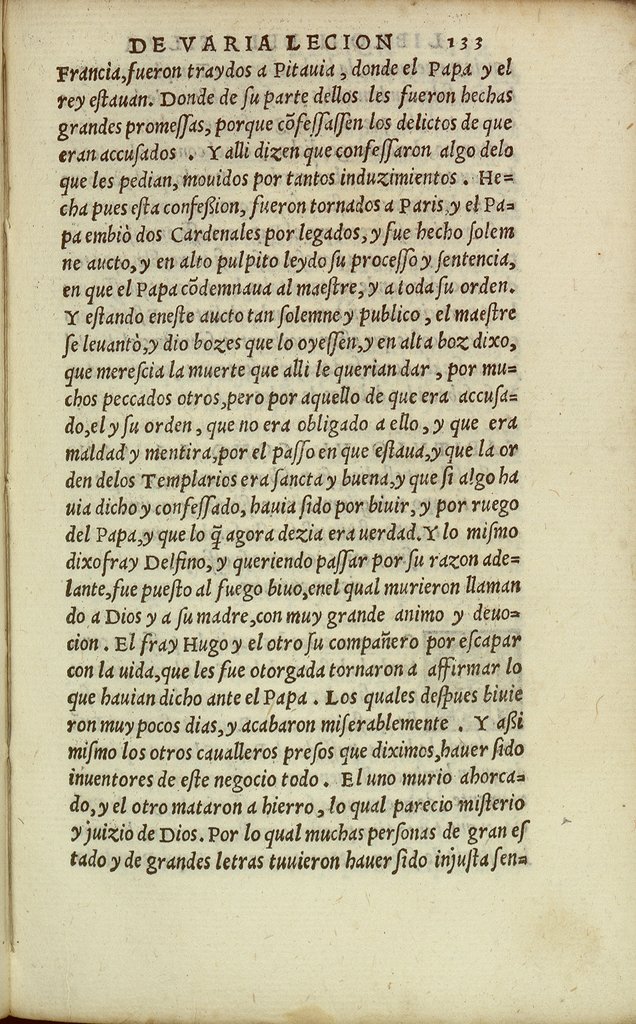 DE VARIA LECION 133
Francia,fueron traydos a Pitauia, donde el Papa y el
rey eſtauan. Donde de ſu parte dellos les fueron hechas
grandes promeſſas, porque cõfeſſaſſen los delictos de que
eran accuſados . Y alli dizen que confeſſaron algo delo
que les pedian, mouidos por tantos induzimientos . He=
cha pues eſta confeßion, fueron tornados a Paris,y el Pa=
pa embiò dos Cardenales por legados, y fue hecho ſolem
ne aucto, y en alto pulpito leydo ſu proceſſo y ſentencia,
en que el Papa cõdemnaua al maeſtre, y a toda ſu orden.
Y eſtando eneſte aucto tan ſolemne y publico, el maeſtre
ſe leuantò,y dio bozes que lo oyeſſen,y en alta boz dixo,
que mereſcia la muerte que alli le querian dar , por mu=
chos peccados otros,pero por aquello de que era accuſa=
do,el y ſu orden , que no era obligado a ello, y que era
maldad y mentira,por el paſſo en que eſtaua,y que la or
den delos Templarios era ſancta y buena,y que ſi algo ha
uia dicho y confeſſado, hauia ſido por biuir, y por ruego
del Papa,y que lo q̃ agora dezia era verdad.Y lo miſmo
dixo fray Delfino, y queriendo paſſar por ſu razon ade=
lante,fue pueſto al fuego biuo,enel qual murieron llaman
do a Dios y a ſu madre,con muy grande animo y deuo=
cion . El fray Hugo y el otro ſu compañero por eſcapar
con la uida,que les fue otorgada tornaron a affirmar lo
que hauian dicho ante el Papa . Los quales deſpues biuie
ron muy pocos dias, y acabaron miſerablemente . Y aßi
miſmo los otros caualleros preſos que diximos,hauer ſido
inuentores de eſte negocio todo . El uno murio ahorca=
do,y el otro mataron a hierro, lo qual parecio miſterio
y juizio de Dios. Por lo qual muchas perſonas de gran eſ
tado y de grandes letras tuuieron hauer ſido injuſta ſen=